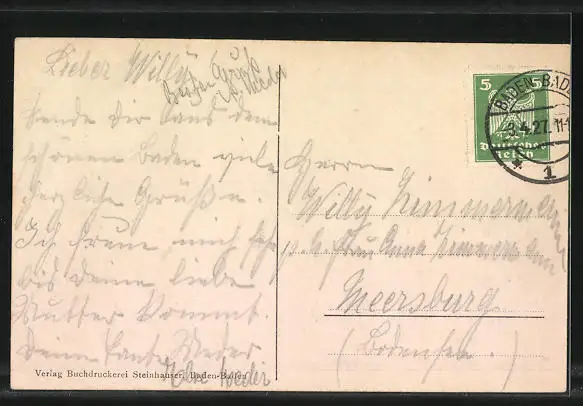 Lieber Willy!
sende Dir aus dem
schönen Baden viele
herzliche Grüße.
Ich freue mich sehr
bis deine liebe
Mutter kommt.
Deine Tante Weder
Verlag Buchdruckerei Steinhauser, Baden-Baden
Weder
5 5
Deutsches
Reich
BADEN-BADEN
3.4.27. 11-1
* 1
Herrn
Willy Zimmermann
Frau Anna Zimmermann
Meersburg
(Bodensee.)